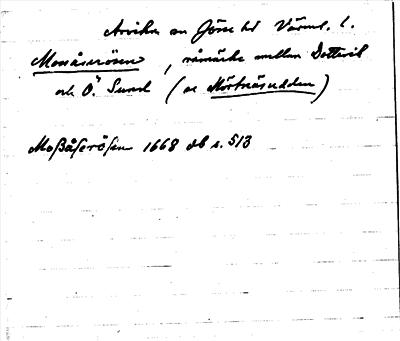 Arvika sn Jösse hd Värml. l.
Mosåsrösen, råmärke mellan Dottevik
och Ö. Sund (se Mörtnäsudden)
Moßåserösen 1668 db s. 513